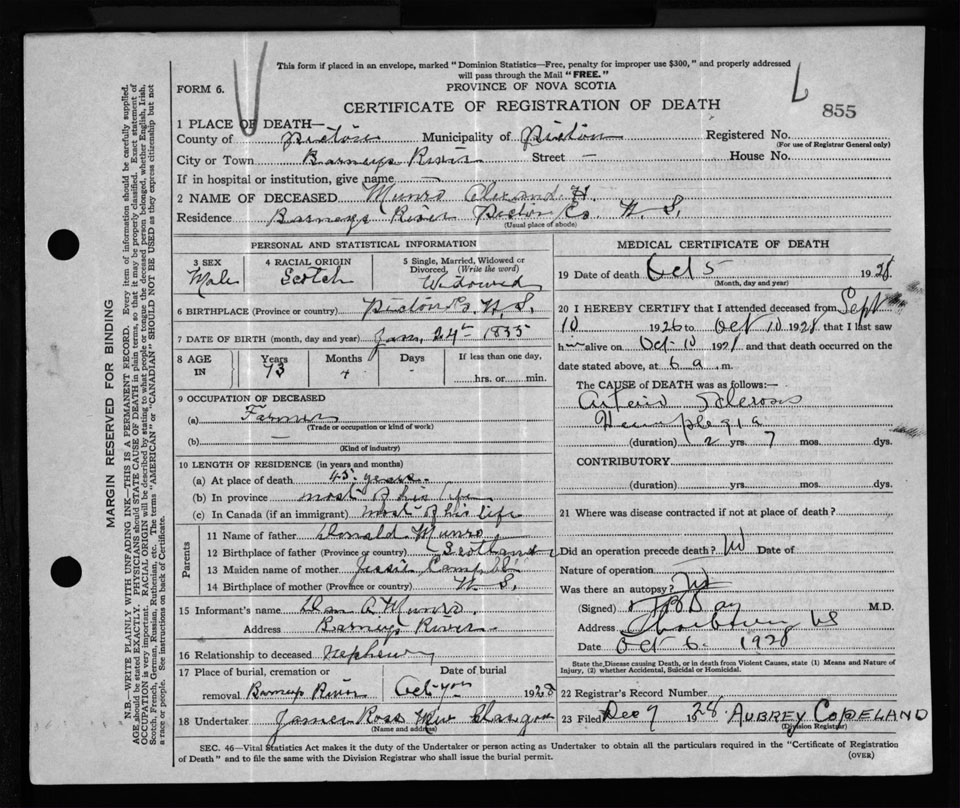 This form if placed in an envelope, marked "Dominion Statistics—Free, penalty for improper use $300," and properly addressed
will pass through the Mail "FREE."
FORM 6.
PROVINCE OF NOVA SCOTIA
CERTIFICATE OF REGISTRATION OF DEATH
855
1 PLACE OF DEATH—
County of Pictou Municipality of Pictou Registered No.
(For use of Registrar General only)
City or Town Barneys River Street — House No.
If in hospital or institution, give name —
2 NAME OF DECEASED Munro H.
Residence Barneys River Pictou Co. N. S.
(Usual place of abode)
PERSONAL AND STATISTICAL INFORMATION
3 SEX
Male
4 RACIAL ORIGIN
Scotch
5 Single, Married, Widowed or
Divorced, (Write the word)
Widowed
6 BIRTHPLACE (Province or country) Pictou Co. N. S.
7 DATE OF BIRTH (month, day and year) Jan. 24th 1855
8 AGE IN
Years
73
Months
Days
-
If less than one day,
hrs. or min.
9 OCCUPATION OF DECEASED
(a) Farmer
(Trade or occupation or kind of work)
(b) —
(Kind of industry)
10 LENGTH OF RESIDENCE (in years and months)
(a) At place of death 45 years
(b) In province most of his life
(c) In Canada (if an immigrant) most of his life
Parents
11 Name of father Donald Munro
12 Birthplace of father (Province or country) Scotland
13 Maiden name of mother Jessie Campbell
14 Birthplace of mother (Province or country) N. S.
15 Informant's name Dan A Munro.
Address Barneys River
16 Relationship to deceased Nephew
17 Place of burial, cremation or
removal Barneys River
Date of burial
Oct 1928
18 Undertaker James Ross New Glasgow
(Name and address)
MEDICAL CERTIFICATE OF DEATH
19 Date of death Oct 5 1928
(Month, day and year)
20 I HEREBY CERTIFY that I attended deceased from Sept
10 1926 to Oct 10 1928 that I last saw
h alive on Oct-10 1928 and that death occurred on the
date stated above, at 6 a.m.
The CAUSE of DEATH was as follows:—
Arterio Sclerosis
Hemiplegia
(duration) 2 yrs. 7 mos. dys.
CONTRIBUTORY.
(duration) yrs. mos. dys.
21 Where was disease contracted if not at place of death?
Did an operation precede death? No Date of
Nature of operation
Was there an autopsy? No
(Signed) Day M.D.
Address NS
Date Oct 6. 1928
State the Disease causing Death, or in death from Violent Causes, state (1) Means and Nature of
Injury, (2) whether Accidental, Suicidal or Homicidal.
22 Registrar's Record Number
23 Filed Dec 7 1928 AUBREY COPELAND
(Division Registrar)
SEC. 46—Vital Statistics Act makes it the duty of the Undertaker or person acting as Undertaker to obtain all the particulars required in the "Certificate of Registration
of Death" and to file the same with the Division Registrar who shall issue the burial permit.
(OVER)
MARGIN RESERVED FOR BINDING
N.B.—WRITE PLAINLY WITH UNFADING INK—THIS IS A PERMANENT RECORD. Every item of information should be carefully supplied.
AGE should be stated EXACTLY. PHYSICIANS should STATE CAUSE OF DEATH in plain terms, so that it may be properly classified. Exact statement of
OCCUPATION is very important. RACIAL ORIGIN will be described by stating to what people or tongue the deceased person belonged, whether English, Irish,
Scotch, French, German, Russian, Ruthenian, etc. The terms "AMERICAN" or "CANADIAN" SHOULD NOT BE USED as they express citizenship but not
a race or people. See instructions on back of Certificate.